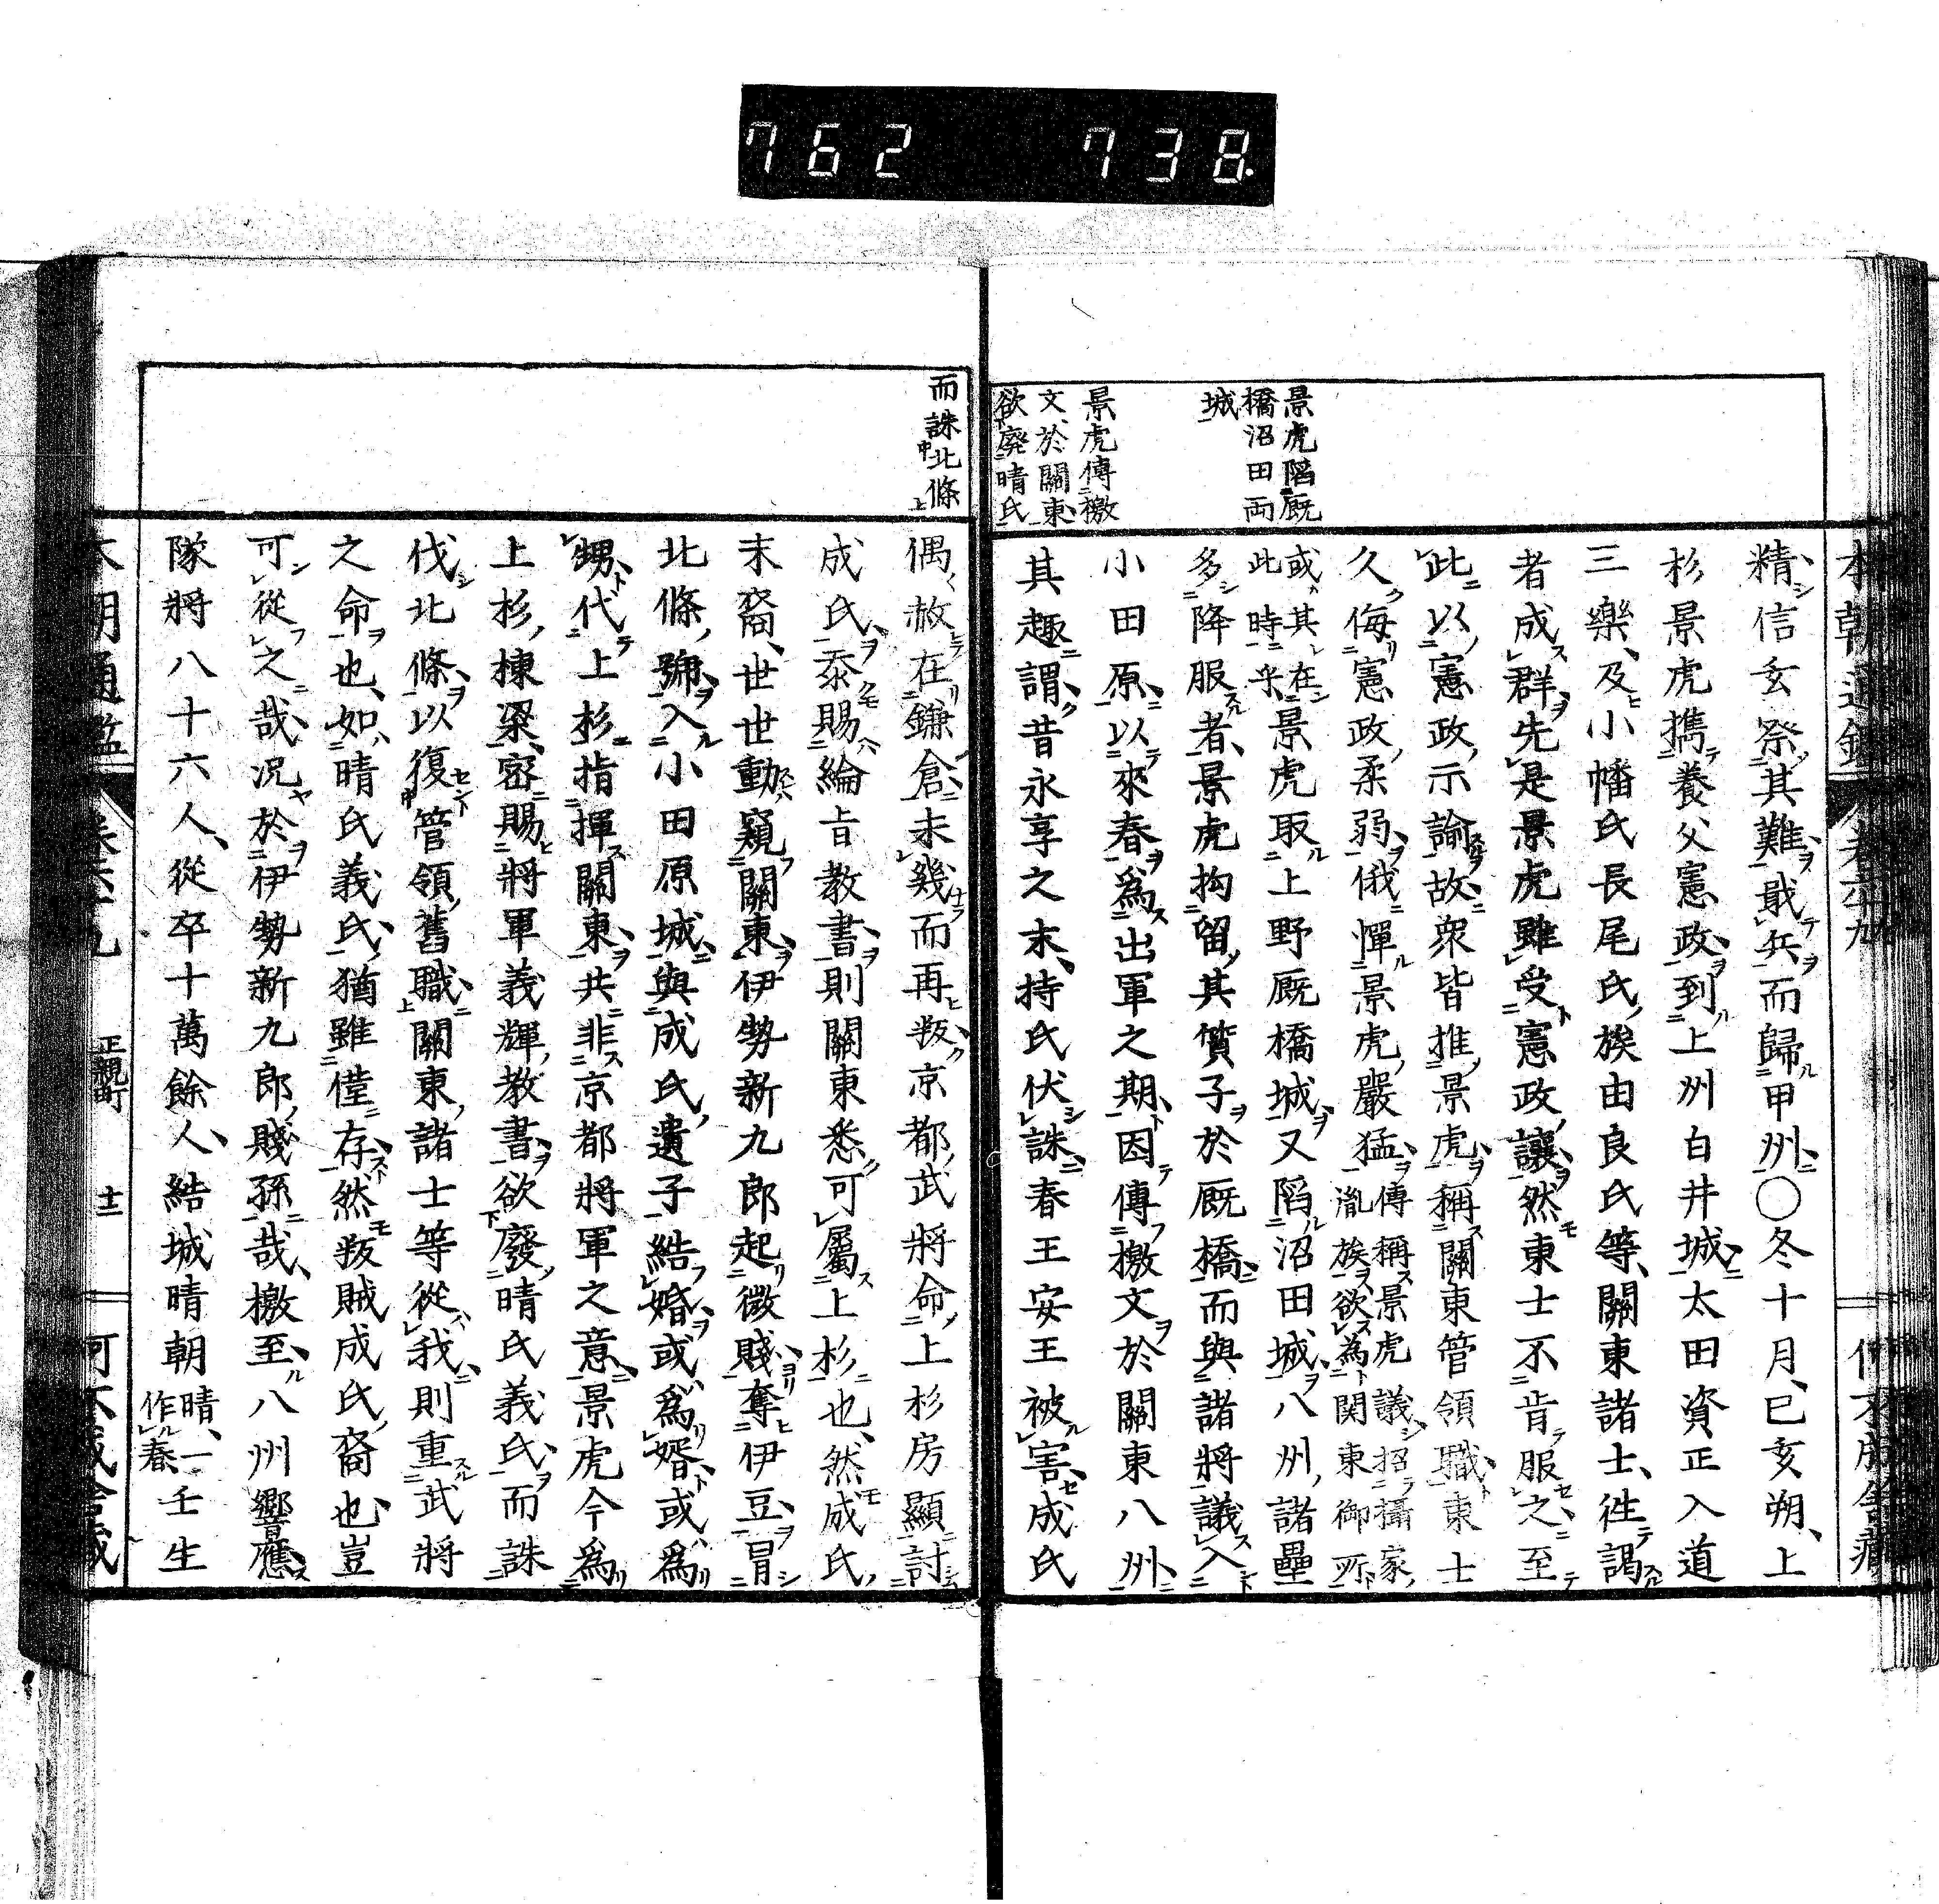 762 738
景虎陷厩
橋沼田両
城
景虎傳檄
文、於關東、
欲廢晴氏
精信玄察其難、戢兵而歸甲州、〇冬十月、己亥朔、上
杉景虎携養父憲政、到上州白井城、太田資正入道
三樂、及小幡氏長尾氏、族由良氏等、關東諸士、往謁
者成群先是景虎雖受憲政讓、然東士不肯服之、至
此以憲政示諭、故衆皆推景虎、稱關東管領職、東士
久侮憲政柔弱、俄憚景虎嚴猛、傳稱景虎議招攝家
胤族欲為関東御所
或其在
此時乎景虎取上野厩橋城、又陷沼田城、八州諸壘
多降服者、景虎拘留其質子於厩橋、而與諸將議入
小田原、以來春、為出軍之期、因傳檄文於關東八州、
其趣謂、昔永享之末、持氏伏誅、春王安王被害、成氏
而誅北條
偶赦在鎌倉、未幾而再叛、京都武將命上杉房顯討
成氏、忝賜綸旨教書、則關東悉可屬上杉也、然成氏
末裔、世世動窺關東、伊勢新九郎起微賤、奪伊豆、冒
北條號、入小田原城、與成氏遺子結婚、或為婿、或為
甥、代上杉指揮關東、共非京都將軍之意、景虎今為
上杉棟梁、密賜將軍義輝教書、欲廢晴氏義氏、而誅
伐北條、以復管領舊職、關東諸士等從我、則重武將
之命也、如晴氏義氏、猶雖僅存、然叛賊成氏裔也、豈
可從之哉、況於伊勢新九郎賤孫哉、檄至、八州響應、
隊將八十六人、從卒十萬餘人、結城晴朝晴、一
作春壬生
本朝通鑑 卷六十九 正親町 十二